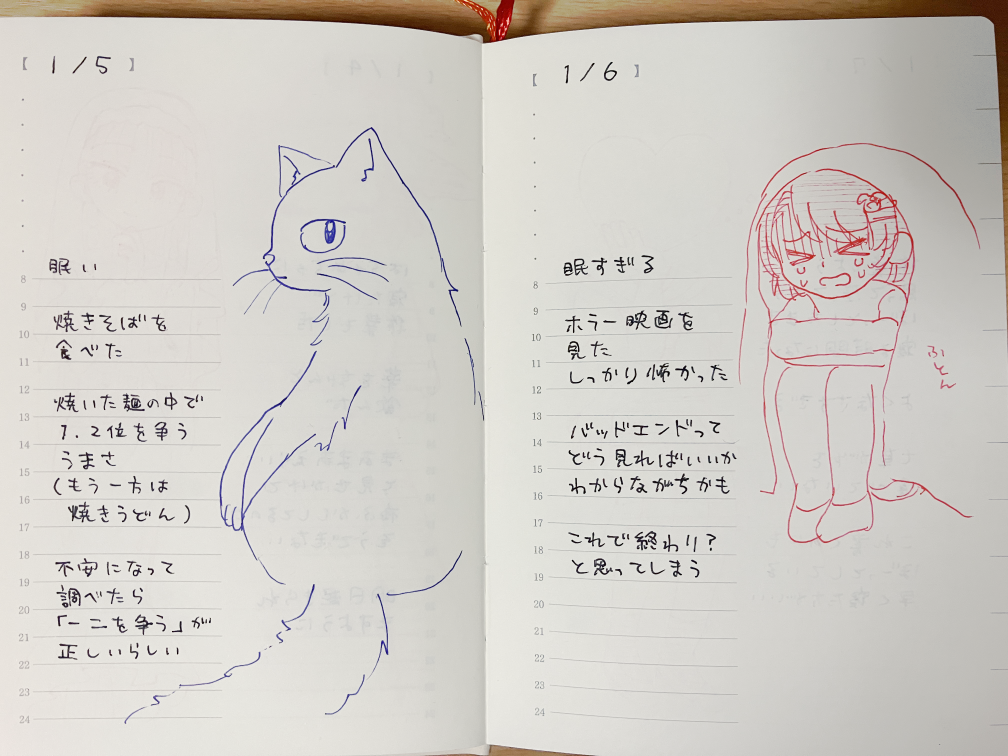 【 1/5 】
眠い
焼きそばを
食べた
焼いた麺の中で
1.2位を争う
うまさ
(もう一方は
焼きうどん)
不安になって
調べたら
「一二を争う」が
正しいらしい
8
9
10
11
12
13
14
15
16
17
18
19
20
21
22
23
24
【 1/6 】
眠すぎる
ホラー映画を
見た
しっかり怖かった
バッドエンドって
どう見ればいいか
わからながちかも
これで終わり?
と思ってしまう
ふとん
8
9
10
11
12
13
14
15
16
17
18
19
20
21
22
23
24